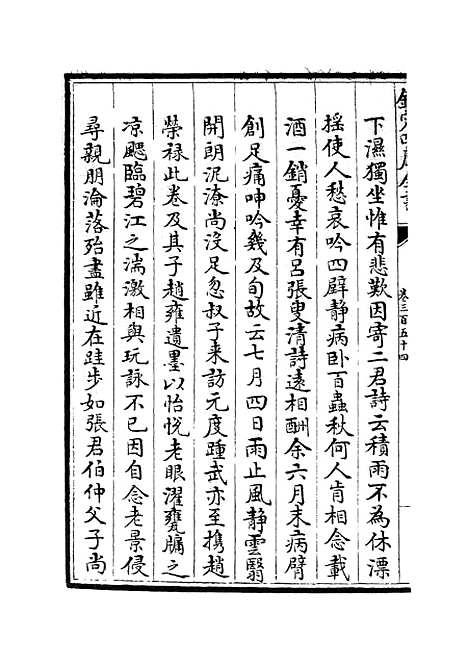 欽定四庫全書
卷三百五十四
下濕獨坐惟有悲歎因寄二君詩云積雨不為休漂
搖使人愁哀吟四壁靜病卧百蟲秋何人肯相念載
酒一銷憂幸有呂張叟清詩遠相酬余六月末病臂
創足痛呻吟幾及旬故云七月四日雨止風靜雲翳
開朗泥潦尚没足忽叔子来訪元度踵武亦至携趙
榮禄此卷及其子趙雍遺墨以怡悦老眼濯甕牖之
凉颸臨碧江之湍激相與玩詠不已因自念老景侵
尋親朋淪落殆盡雖近在跬步如張君伯仲父子尚